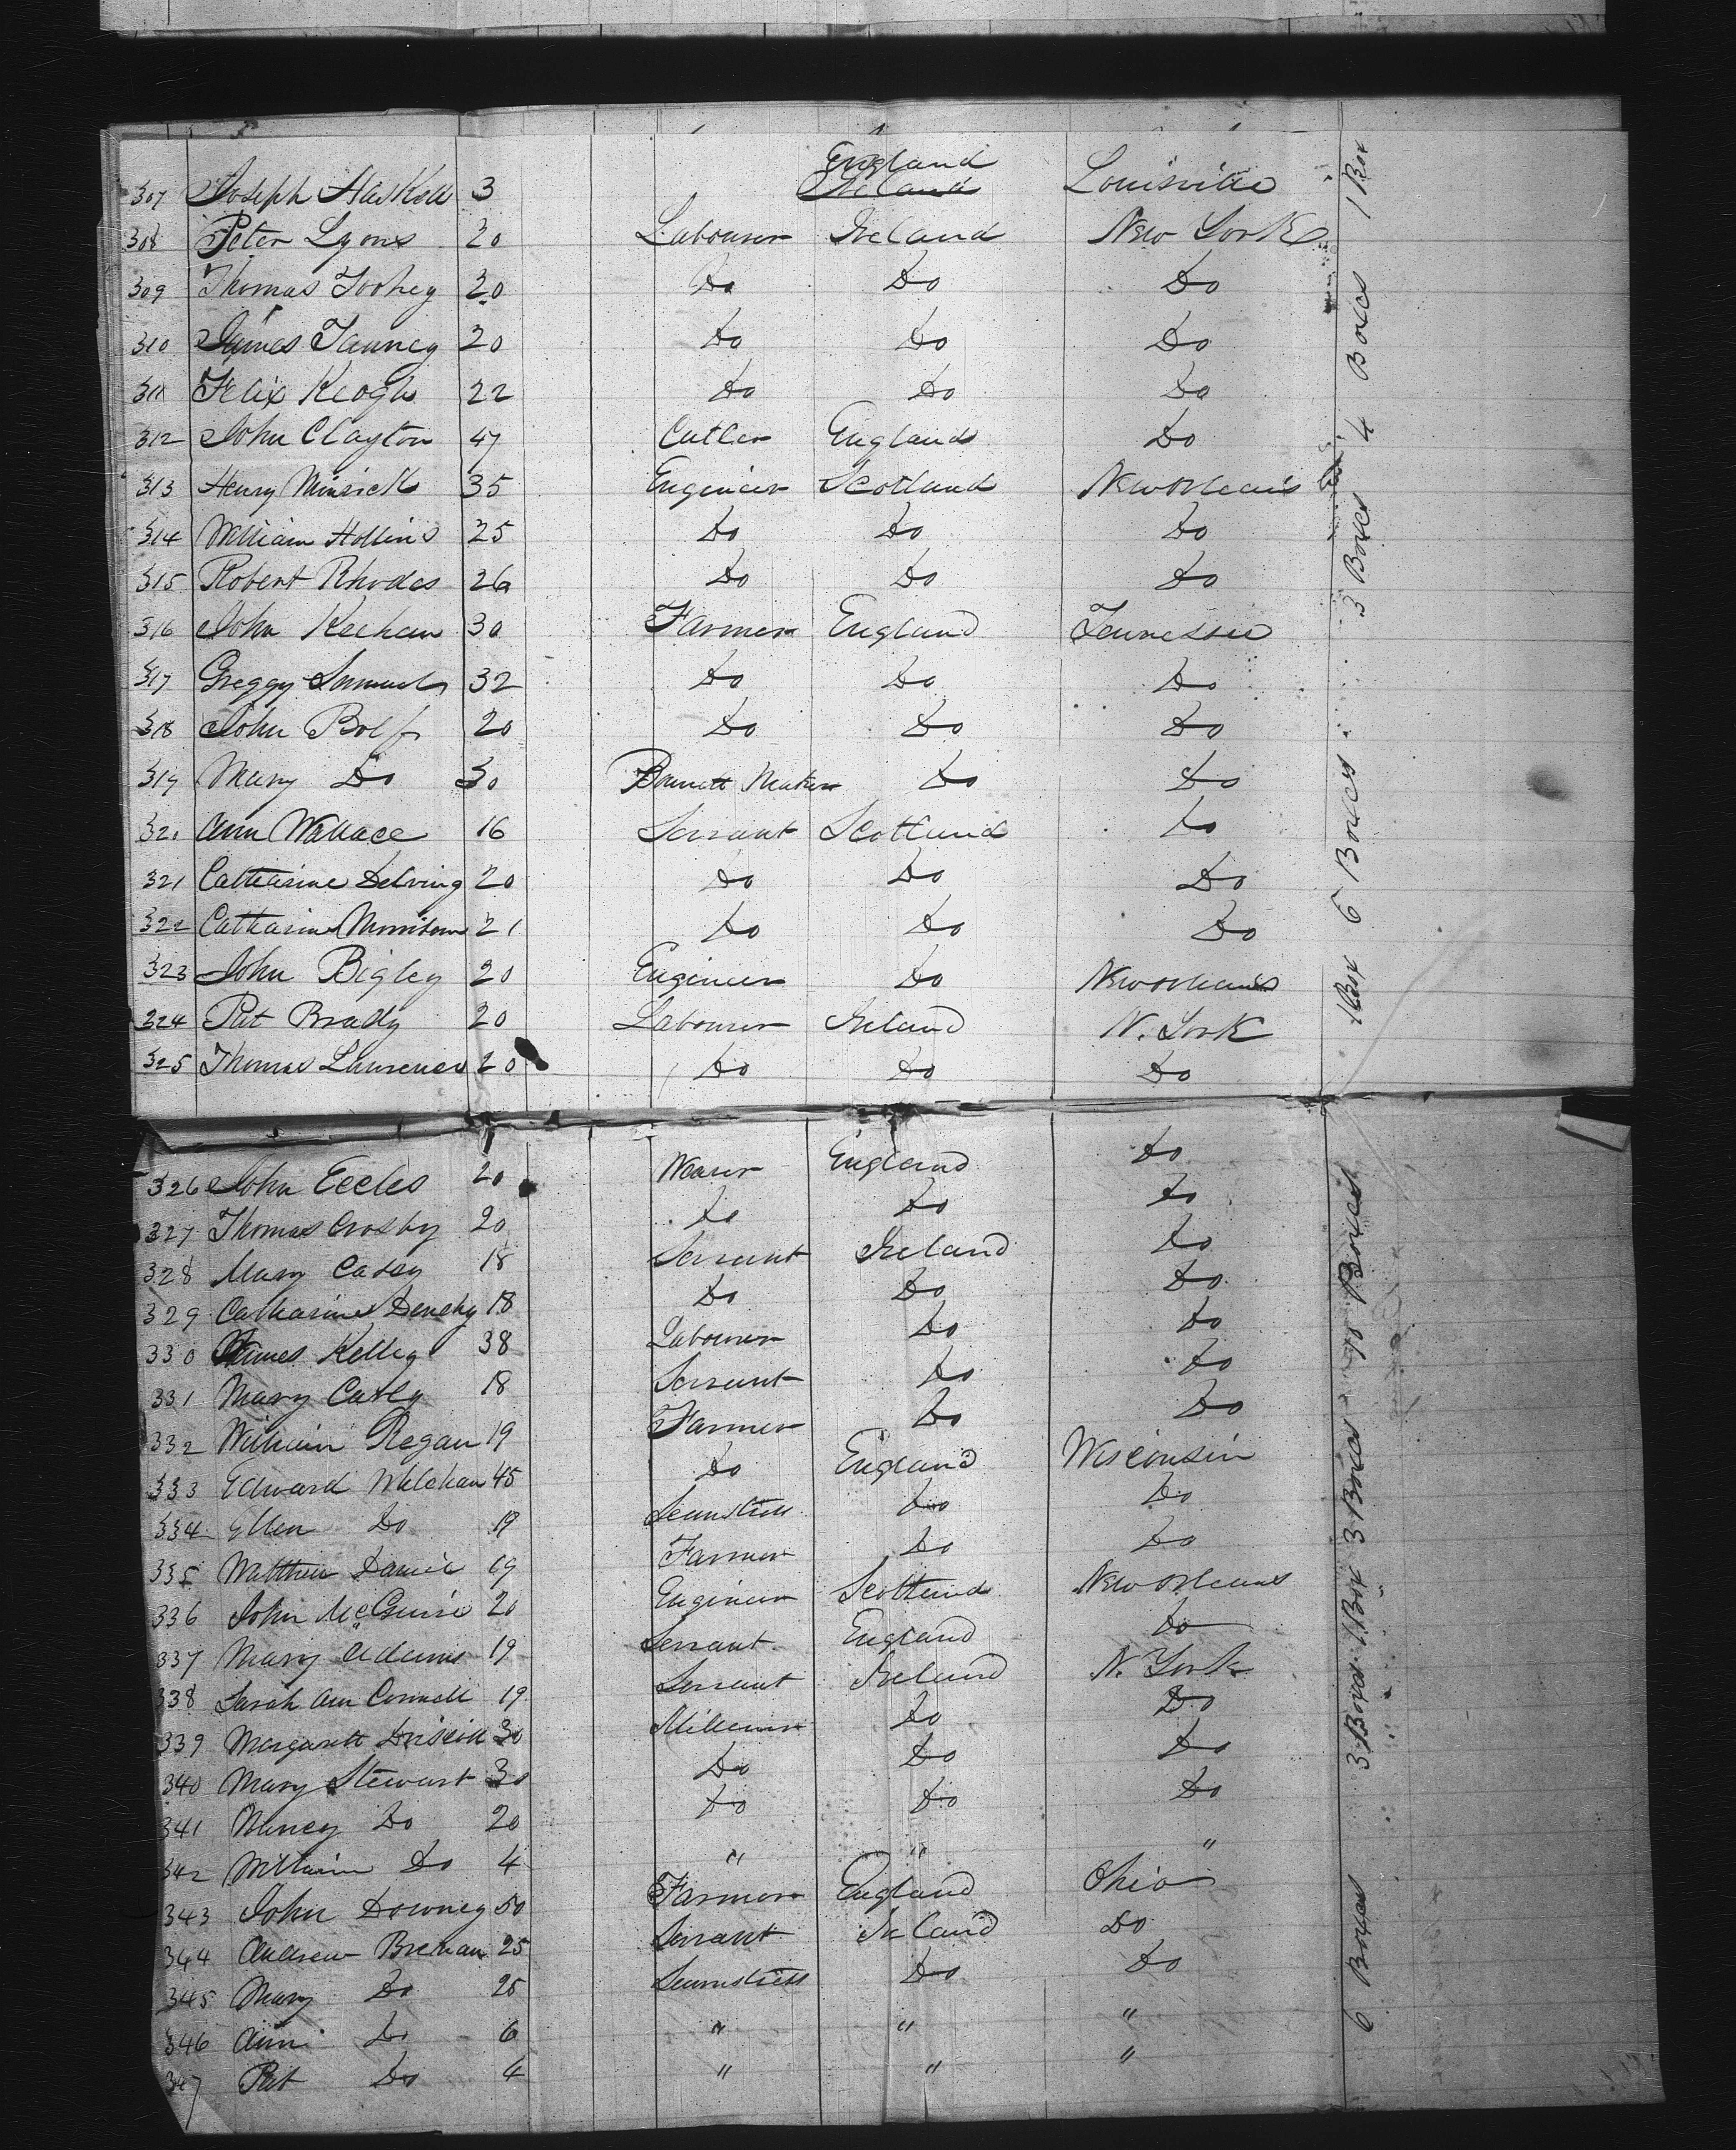 307 Joseph Haskell 3 England Ireland Louisville
308 Peter Lyons 20 Labourer Ireland New York
309 Thomas Toohey 20 Do Do Do
310 James Tanney 20 Do Do Do
311 Felix Keogh 22 Do Do Do
312 John Clayton 47 Cutler England Do
313 Henry 35 Engineer Scotland New Orleans
314 William Hollins 25 Do Do Do
315 Robert Rhodes 26 Do Do Do
316 John Keehan 30 Farmer England Tennessee
317 Greggy Samuels 32 Do Do Do
318 John Bolf 20 Do Do Do
319 Mary Do 30 Bonnett Maker Do Do
320 Ann Wallace 16 Servant Scotland Do
321 Catharine Delving 20 Do Do Do
322 Catharine Morrison 21 Do Do Do
323 John Bigley 20 Engineer Do New Orleans
324 Pat Brady 20 Labourer Ireland N. York
325 Thomas Lawrence 20 Do Do Do
326 John Eccles 20 Weaver England Do
327 Thomas Crosby 20 Do Do Do
328 Mary Casey 18 Servant Ireland Do
329 Catharine Denehy 18 Do Do Do
330 James Kelley 38 Labourer Do Do
331 Mary 18 Servant Do Do
332 William Regan 19 Farmer Do Do
333 Edward Malehan 45 Do England Wisconsin
334 Ellen Do 19 Seamstress Do Do
335 Matthew Daniel 19 Farmer Do Do
336 John McGuire 20 Engineer Scotland New Orleans
337 Mary Adams 19 Servant England Do
338 Sarah Ann Connell 19 Servant Ireland N. York
339 Margarett Driscoll 30 Milliner Do Do
340 Mary Stewart 30 Do Do Do
341 Nancy Do 20 Do Do Do
342 William Do 4 " " "
343 John Downey 50 Farmer England Ohio
344 Andrew Brenan 25 Servant Ireland Do
345 Mary Do 25 Seamstress Do Do
346 Ann Do 6 " " "
347 Pat Do 4 " " "
1 Box
4 Boxes
3 Boxes
6 Boxes
1 Box
Boxes
3 Boxes
1 Box
3 Boxes
6 Boxes